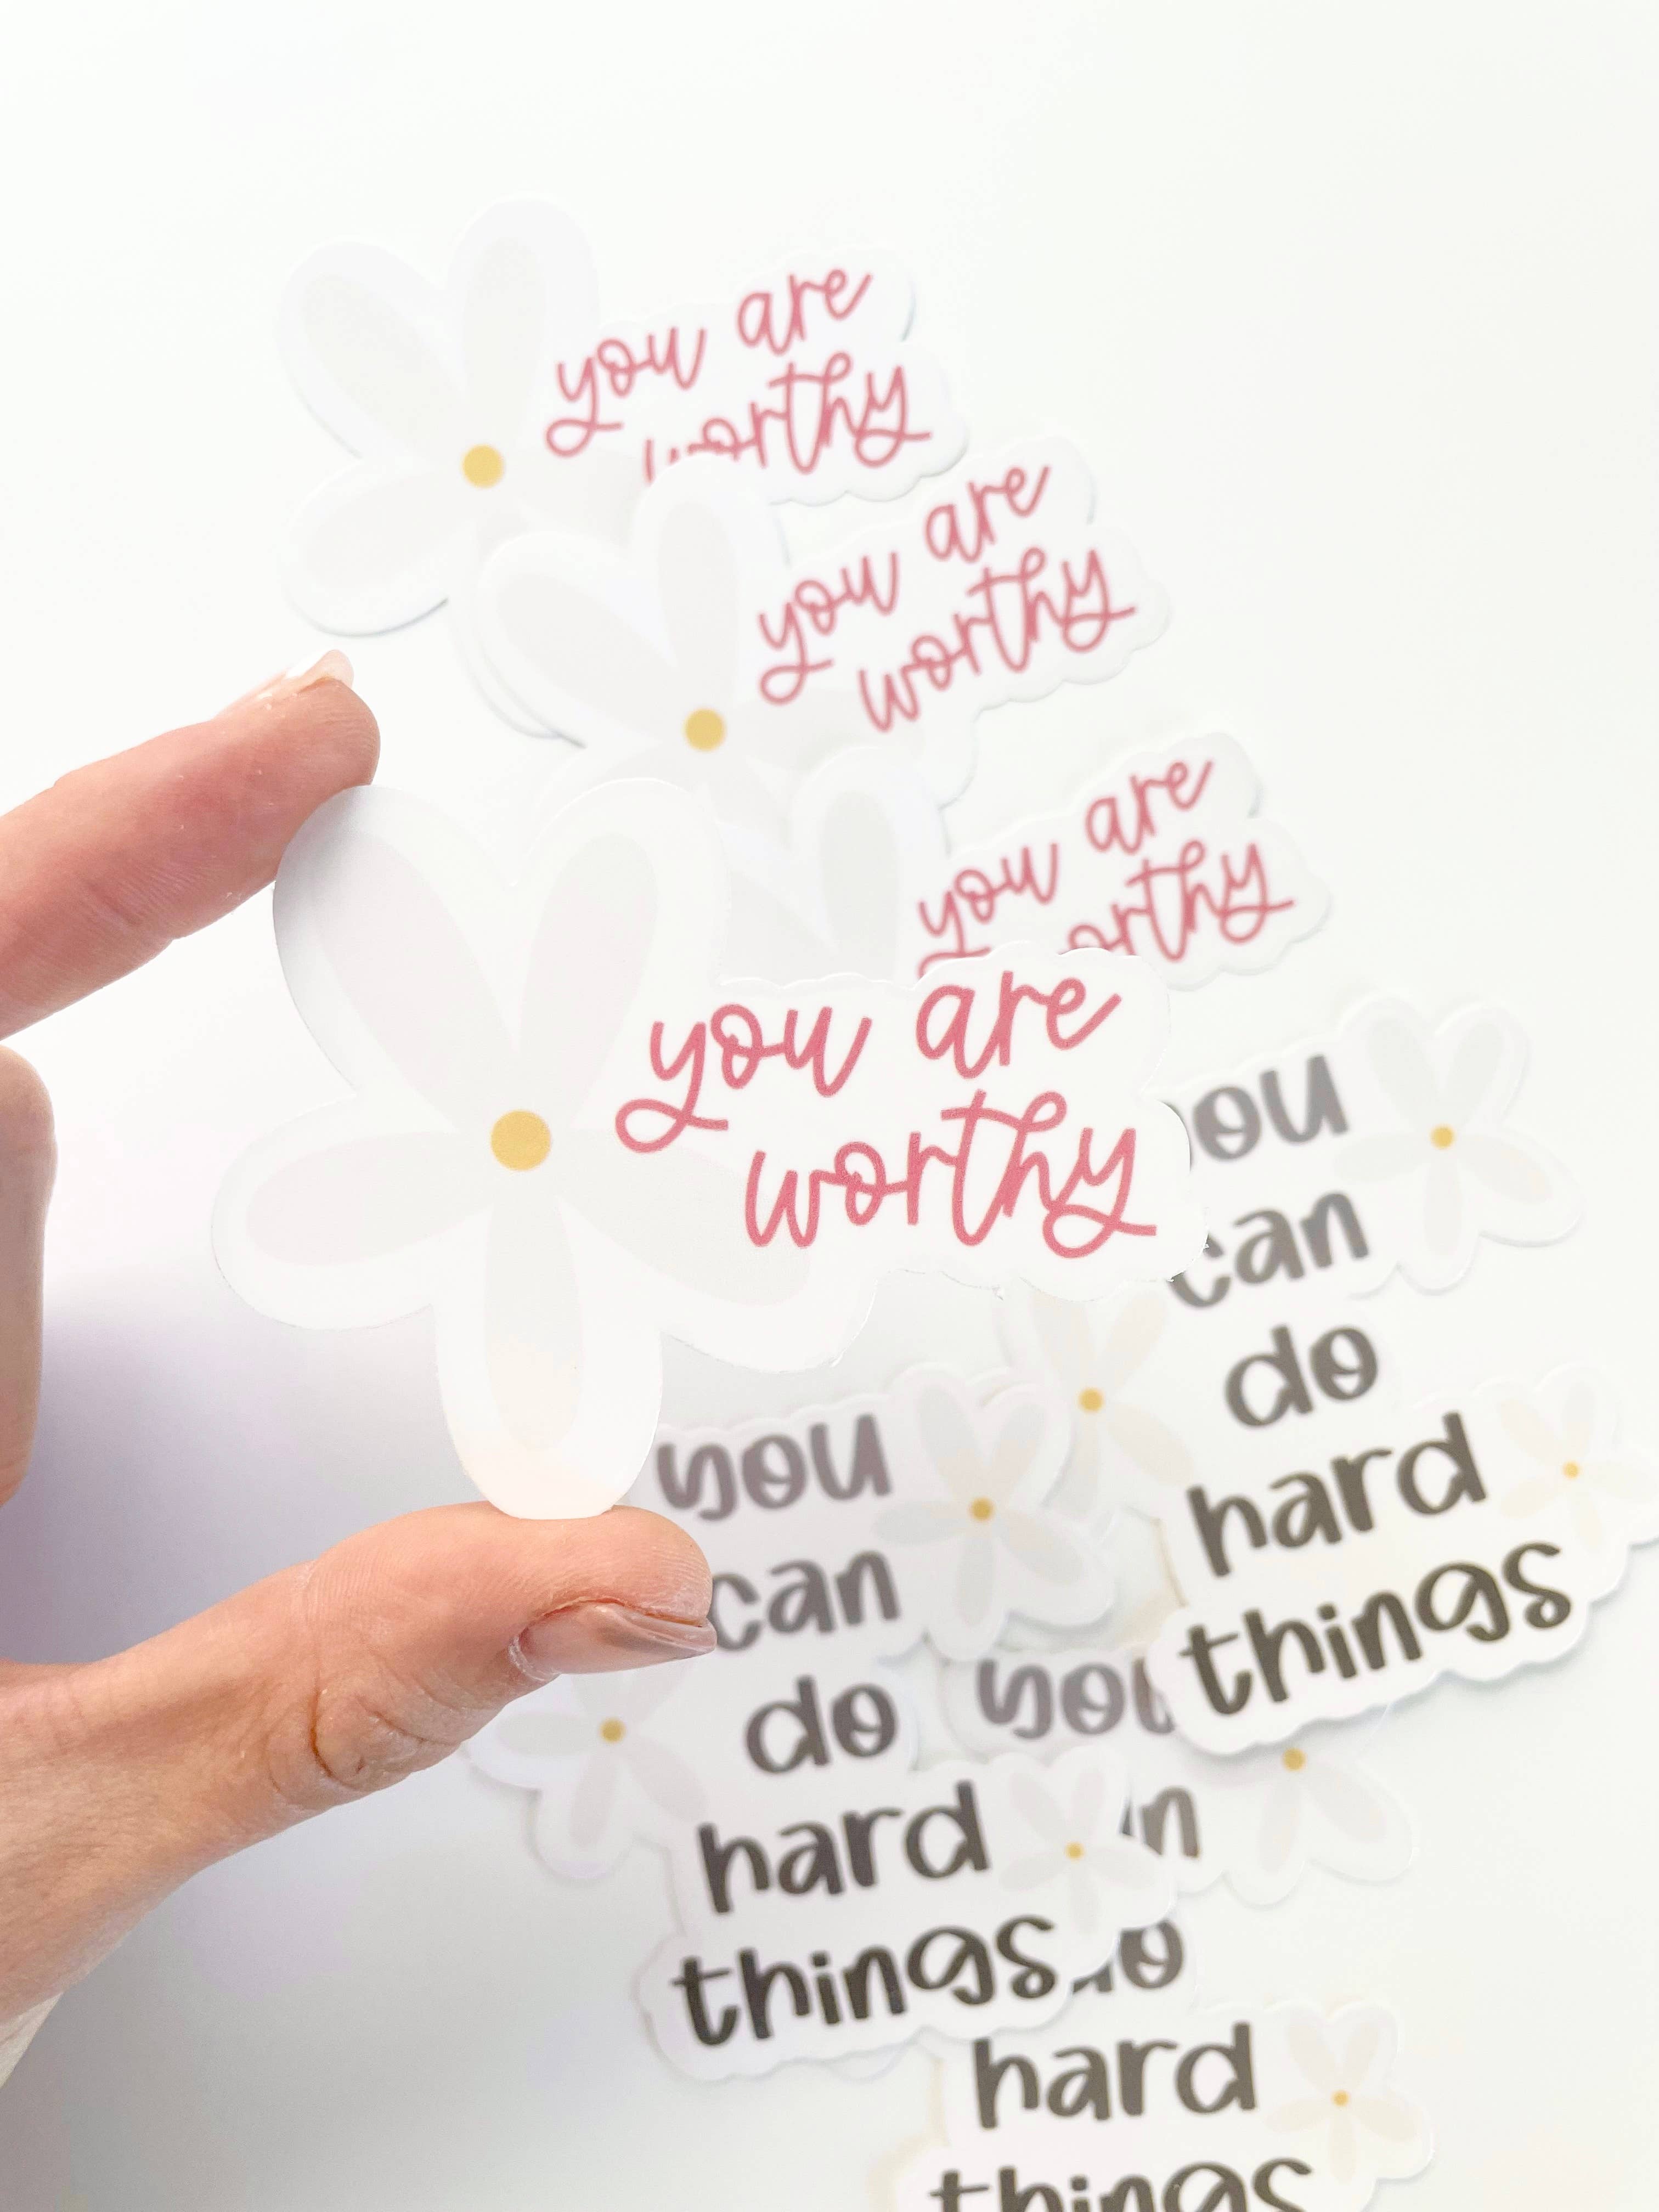 you are
worthy
you are
worthy
you are
orthy
you are
worthy
you
can
do
hard
things
you
can
do
hard
things
you
hard
things